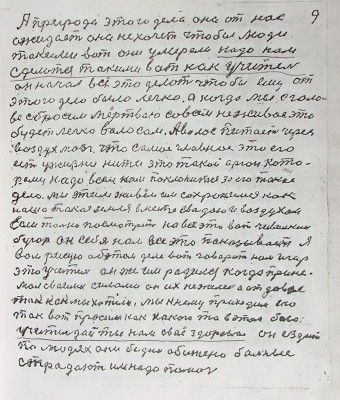 9
А природа этого дела она от нас
ожидает она не хочет чтобы люди
такеми вот они умерали надо нам
сделатся такими вот как учител
он начал всё это делот чтобы ему от
этого дело было легко. а когда мы с голо
ве сбросем мертваю совсем неживое это
будет легко волосом. А волос питает через
воздух мозг. что самое главное это его
ест ужизни нити это такой орган кото-
рему надо всем нам поклонится за его такое
дело. мы этем живём им сохроняемся как
наша такая земля, вместе свадою и воздухом
Если только посмотреть на всё это вот чевилкин
бугор он себя нам всё это показывает Я
вам рисую обэтом деле вот говорит нам
это учител он же им родился когда прине-
мал своими силами он их нежелел отдовал
так как мы хотели, мы к нему приходили его
так вот просили как какого то вэтом бога:
учитель дай ты нам своё здоровье он ездит
по людях они бедно обижено больные
страдают им надо помоч